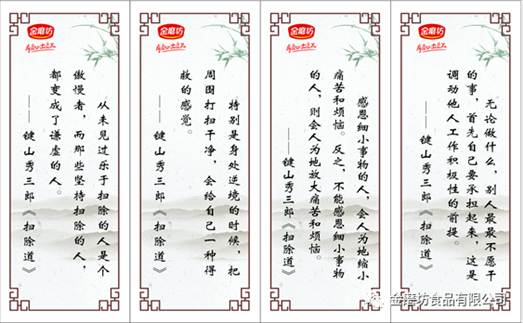 金磨坊
从未见过乐于扫除的人是个
傲慢者，而那些坚持扫除的人，
都变成了谦虚的人。
——键山秀三郎《扫除道》
金磨坊
特别是身处逆境的时候，把
周围打扫干净，会给自己一种得
救的感觉。
——键山秀三郎《扫除道》
金磨坊
感恩细小事物的人，会人为地缩小
痛苦和烦恼。反之，不能感恩细小事物
的人，则会人为地放大痛苦和烦恼。
——键山秀三郎《扫除道》
金磨坊
无论做什么，别人最最不愿干
的事，首先自己要承担起来，这是
调动他人工作积极性的前提。
——键山秀三郎《扫除道》
金磨坊食品有限公司